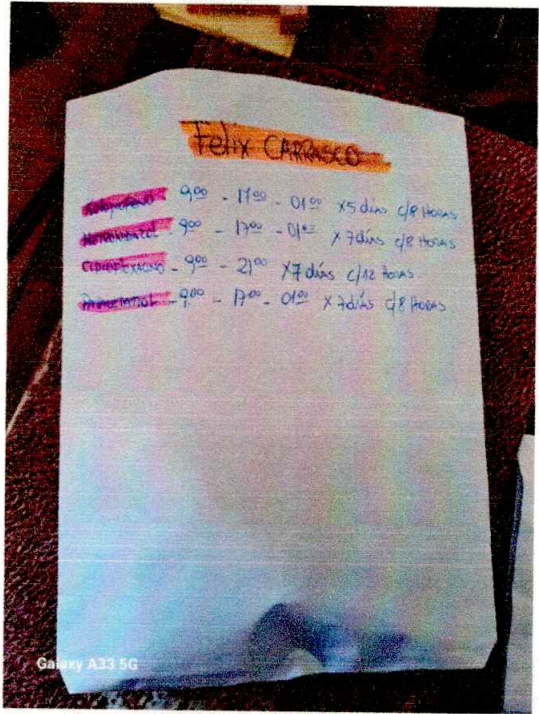 Felix CARRASCO
KETOPROFENO 9:00 - 17:00 - 01:00 x5 días c/8 HORAS
METRONIDAZOL - 9:00 - 17:00 - 01:00 x 7 días c/8 HORAS
CIPROFLOXACINO - 9:00 - 21:00 x7 días c/12 horas.
PARACETAMOL - 9:00 - 17:00 - 01:00 x 7 días c/8 HORAS
Galaxy A33 5G